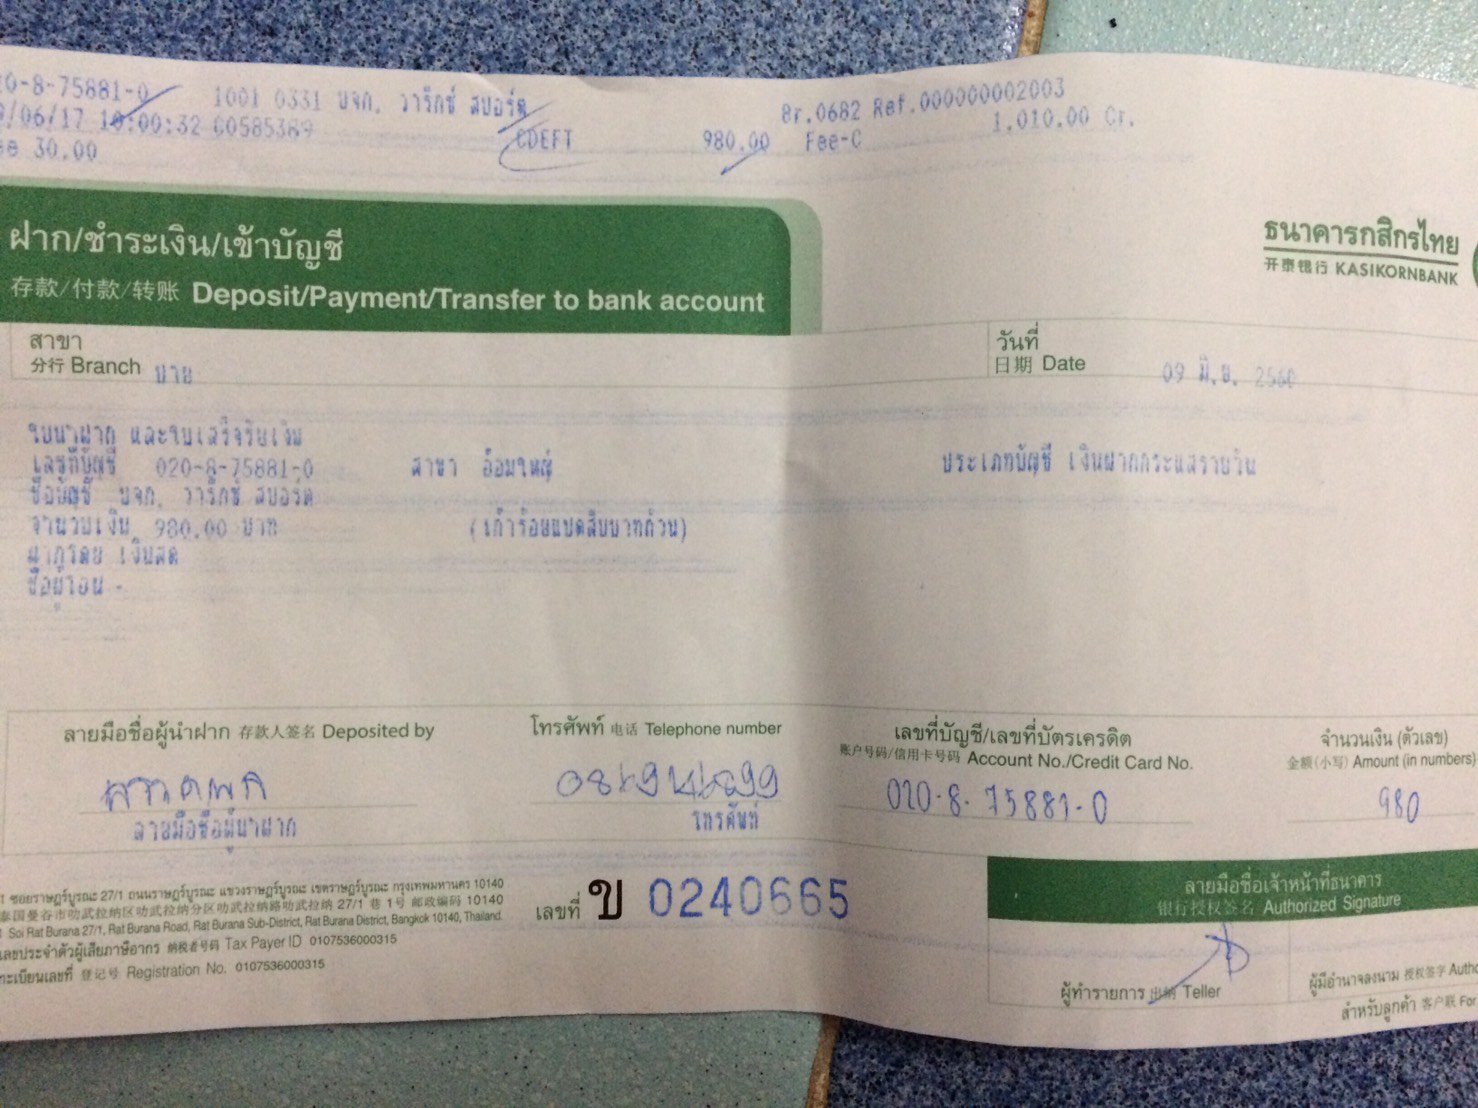 20-8-75881-0 1001 0331 บจก. วาริกซ์ สปอร์ต Br.0682 Ref.000000002003
/06/17 10:00:32 C0585389 CDEFT 980.00 Fee-C 1,010.00 Cr.
30.00
ฝาก/ชำระเงิน/เข้าบัญชี
存款/付款/转账 Deposit/Payment/Transfer to bank account
ธนาคารกสิกรไทย
开泰银行 KASIKORNBANK
สาขา
分行 Branch ปาย
วันที่
日期 Date 09 มิ.ย. 2560
ใบนำฝาก และใบเสร็จรับเงิน
เลขที่บัญชี 020-8-75881-0 สาขา อ้อมใหญ่ ประเภทบัญชี เงินฝากกระแสรายวัน
ชื่อบัญชี บจก. วาริกซ์ สปอร์ต
จำนวนเงิน 980.00 บาท (เก้าร้อยแปดสิบบาทถ้วน)
ฝากโดย เงินสด
ชื่อผู้โอน -
ลายมือชื่อผู้นำฝาก 存款人签名 Deposited by
โทรศัพท์ 电话 Telephone number
เลขที่บัญชี/เลขที่บัตรเครดิต
账户号码/信用卡号码 Account No./Credit Card No.
จำนวนเงิน (ตัวเลข)
金额(小写) Amount (in numbers)
020-8-75881-0
980
ลายมือชื่อผู้นำฝาก
โทรศัพท์
ซอยราษฎร์บูรณะ 27/1 ถนนราษฎร์บูรณะ แขวงราษฎร์บูรณะ เขตราษฎร์บูรณะ กรุงเทพมหานคร 10140
泰国曼谷市叻武拉纳区叻武拉纳分区叻武拉纳路叻武拉纳 27/1 巷 1号 邮政编码 10140
Soi Rat Burana 27/1, Rat Burana Road, Rat Burana Sub-District, Rat Burana District, Bangkok 10140, Thailand.
เลขประจำตัวผู้เสียภาษีอากร 纳税者号码 Tax Payer ID 0107536000315
ทะเบียนเลขที่ 登记号 Registration No. 0107536000315
เลขที่ ข 0240665
ลายมือชื่อเจ้าหน้าที่ธนาคาร
银行授权签名 Authorized Signature
ผู้ทำรายการ 出纳 Teller
ผู้มีอำนาจลงนาม 授权签字
สำหรับลูกค้า 客户联 For